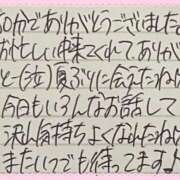 60分でありがとうございました
お忙しい中来てくれてありが
と〜(泣)夏ぶりに会えたわね
今日もいろんなお話して
沢山気持ちよくなれたわね
またいつでも待ってますよ